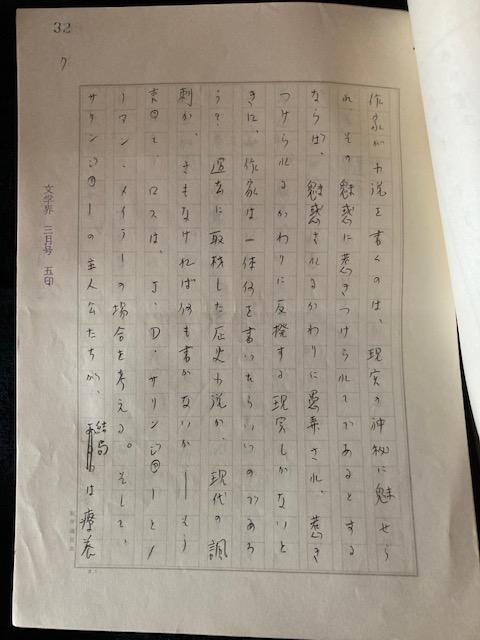 32
7
作家が小説を書くのは、現実の神秘に魅せら
れ、その魅惑に惹きつけられてであるとする
ならば、魅惑されるかわりに愚弄され、惹き
つけられるかわりに反撥する現実しかないと
きに、作家は一体何を書いたらいいのであろ
う？過去に取材した歴史小説か、現代の諷
刺か、さもなければ何も書かないか――もう
言って、ロスは、J・D・サリンジャーとノ
ーマン・メイラーの場合を考える。そして、
サリンジャーの主人公たちが、結局は療養
文学界 三月号 五印